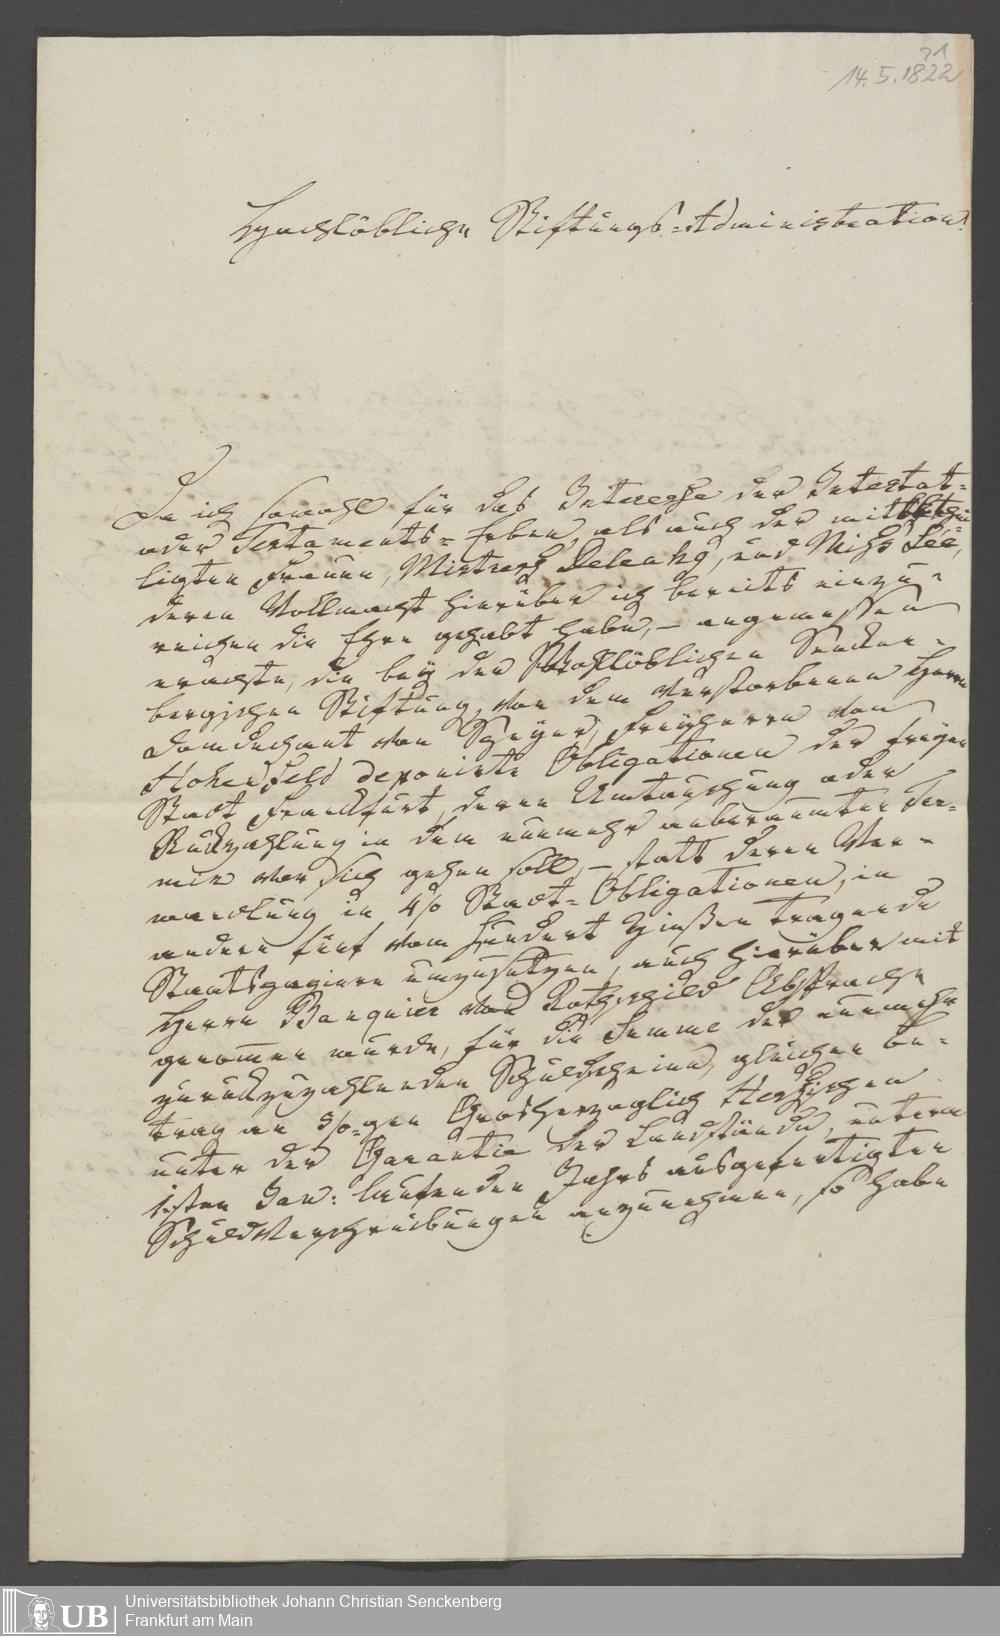 21
14.5.1822
Hochlöbliche Stiftungs-Administration!
Da ich sowohl für das Interesse der Intestat-
oder Testaments-Erben, als auch der mitbethei-
ligten Frauen, Mistress und Miss Lee,
deren Vollmacht hierüber ich bereits einzu-
reichen die Ehre gehabt habe, – angemessen
erachte, die beÿ der Wohllöblichen Sencken-
bergischen Stiftung, von dem verstorbenen Herrn
Domdechant von Speÿer, Freÿherrn von
Hohenfeld deponirte Obligationen der freÿen
Stadt Frankfurt, deren Umtauschung oder
Rückzahlung in dem nunmehr anberaumten Ter-
min vor sich gehen soll, – statt deren Ver-
wandlung in 4% Stadt-Obligationen, in
andere fünf vom Hundert Zinßen tragende
Staatspapiere umzusetzen, auch hierüber mit
Herrn Banquier von Rothschild Absprache
genommen wurde, für die Summe der nunmehr
zurückzuzahlenden Schuldscheine, gleichen Be-
trag an 5%-gen Grosherzoglich Hessischen
unter der Garantie der Landstände, unterm
1.sten Jan: laufenden Jahrs ausgefertigten
Schuldverschreibungen anzunehmen, so habe
UB
Universitätsbibliothek Johann Christian Senckenberg
Frankfurt am Main